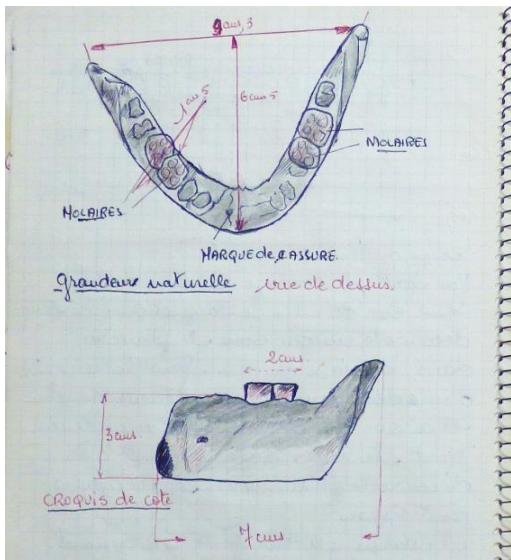 9cms,3
6cms5
1cm5
MOLAIRES
MOLAIRES
MARQUE de CASSURE.
grandeur naturelle vue de dessus.
2cms
3cms
CROQUIS de coté
7cms